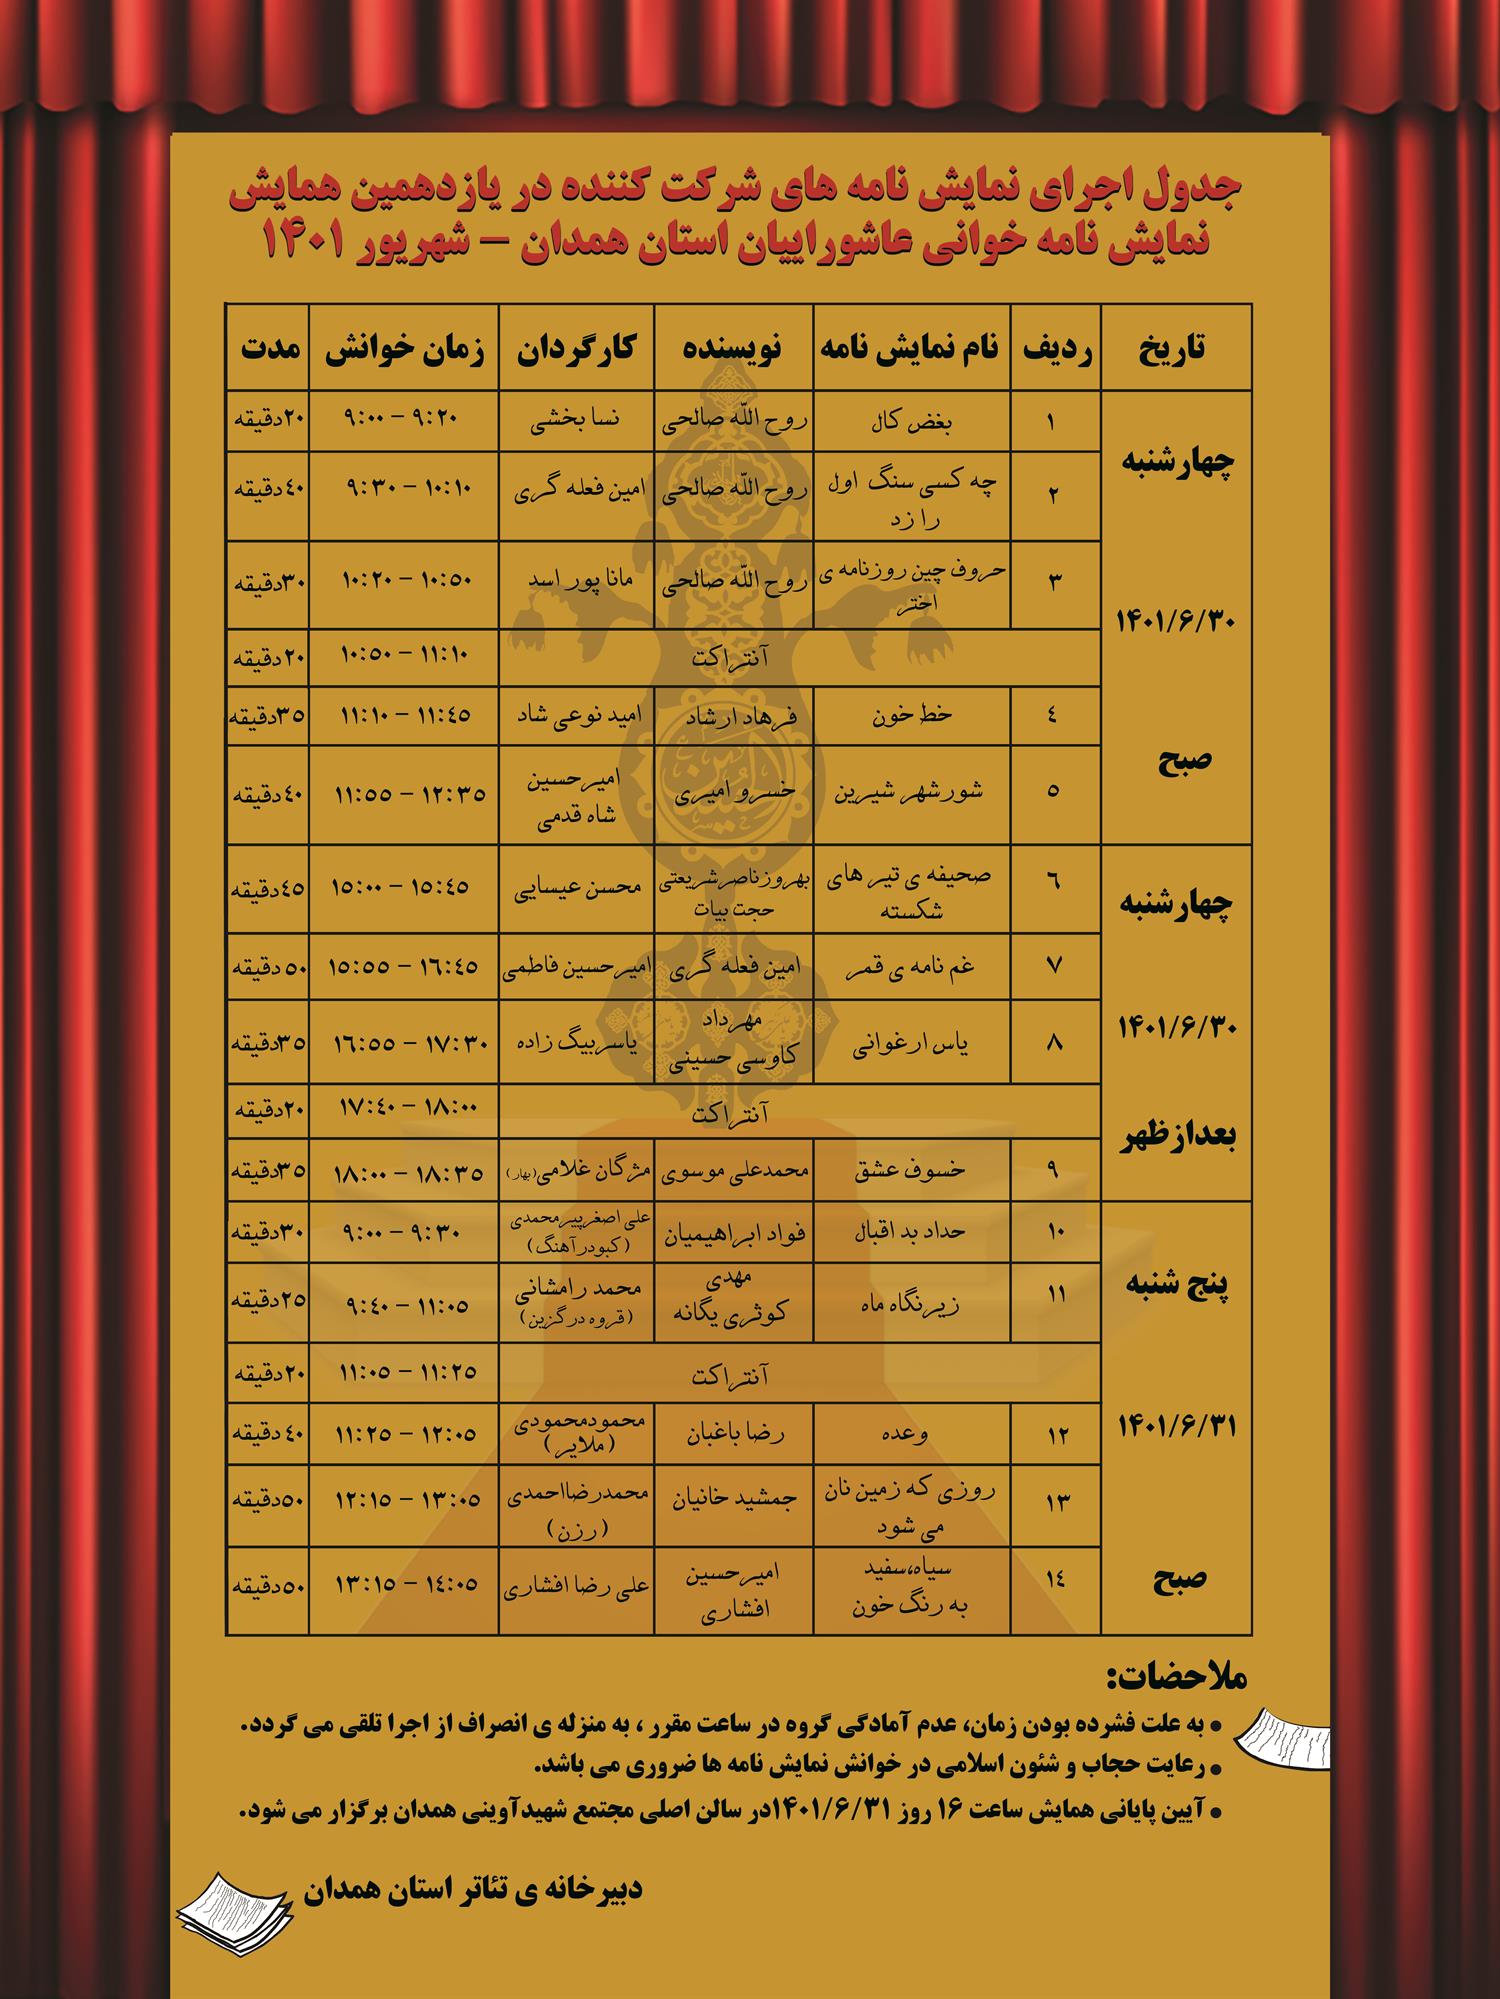 جدول اجرای نمایش نامه های شرکت کننده در یازدهمین همایش
نمایش نامه خوانی عاشوراییان استان همدان – شهریور ۱۴۰۱
تاریخ ردیف نام نمایش نامه نویسنده کارگردان زمان خوانش مدت
چهارشنبه
۱۴۰۱/۶/۳۰
صبح
۱ بغض کال روح الله صالحی نسا بخشی ۹:۰۰ – ۹:۲۰ ۲۰دقیقه
۲ چه کسی سنگ اول را زد روح الله صالحی امین فعله گری ۹:۳۰ – ۱۰:۱۰ ٤۰دقیقه
۳ حروف چین روزنامه ی اختر روح الله صالحی مانا پور اسد ۱۰:۲۰ – ۱۰:۵۰ ۳۰دقیقه
آنتراکت ۱۰:۵۰ – ۱۱:۱۰ ۲۰دقیقه
٤ خط خون فرهاد ارشاد امید نوعی شاد ۱۱:۱۰ – ۱۱:٤۵ ۳۵دقیقه
۵ شور شهر شیرین خسرو امیری امیرحسین شاه قدمی ۱۱:۵۵ – ۱۲:۳۵ ٤۰دقیقه
چهارشنبه
۱۴۰۱/۶/۳۰
بعدازظهر
٦ صحیفه ی تیر های شکسته بهروزناصرشریعتی حجت بیات محسن عیسایی ۱۵:۰۰ – ۱۵:٤۵ ٤۵دقیقه
۷ غم نامه ی قمر امین فعله گری امیرحسین فاطمی ۱۵:۵۵ – ۱٦:٤۵ ۵۰دقیقه
۸ یاس ارغوانی مهرداد کاوسی حسینی یاسربیگ زاده ۱٦:۵۵ – ۱۷:۳۰ ۳۵دقیقه
آنتراکت ۱۷:٤۰ – ۱۸:۰۰ ۲۰دقیقه
۹ خسوف عشق محمدعلی موسوی مژگان غلامی(بهار) ۱۸:۰۰ – ۱۸:۳۵ ۳۵دقیقه
پنج شنبه
۱۴۰۱/۶/۳۱
صبح
۱۰ حداد بد اقبال فواد ابراهیمیان علی اصغرپیرمحمدی (کبودرآهنگ) ۹:۰۰ – ۹:۳۰ ۳۰دقیقه
۱۱ زیرنگاه ماه مهدی کوثری یگانه محمد رامشانی (قروه درگزین) ۹:٤۰ – ۱۱:۰۵ ۲۵دقیقه
آنتراکت ۱۱:۰۵ – ۱۱:۲۵ ۲۰دقیقه
۱۲ وعده رضا باغبان محمودمحمودی (ملایر) ۱۱:۲۵ – ۱۲:۰۵ ٤۰دقیقه
۱۳ روزی که زمین نان می شود جمشید خانیان محمدرضااحمدی (رزن) ۱۲:۱۵ – ۱۳:۰۵ ۵۰دقیقه
۱٤ سیاه،سفید به رنگ خون امیرحسین افشاری علی رضا افشاری ۱۳:۱۵ – ۱٤:۰۵ ۵۰دقیقه
ملاحضات:
• به علت فشرده بودن زمان، عدم آمادگی گروه در ساعت مقرر ، به منزله ی انصراف از اجرا تلقی می گردد.
• رعایت حجاب و شئون اسلامی در خوانش نمایش نامه ها ضروری می باشد.
• آیین پایانی همایش ساعت ۱۶ روز ۱۴۰۱/۶/۳۱در سالن اصلی مجتمع شهیدآوینی همدان برگزار می شود.
دبیرخانه ی تئاتر استان همدان